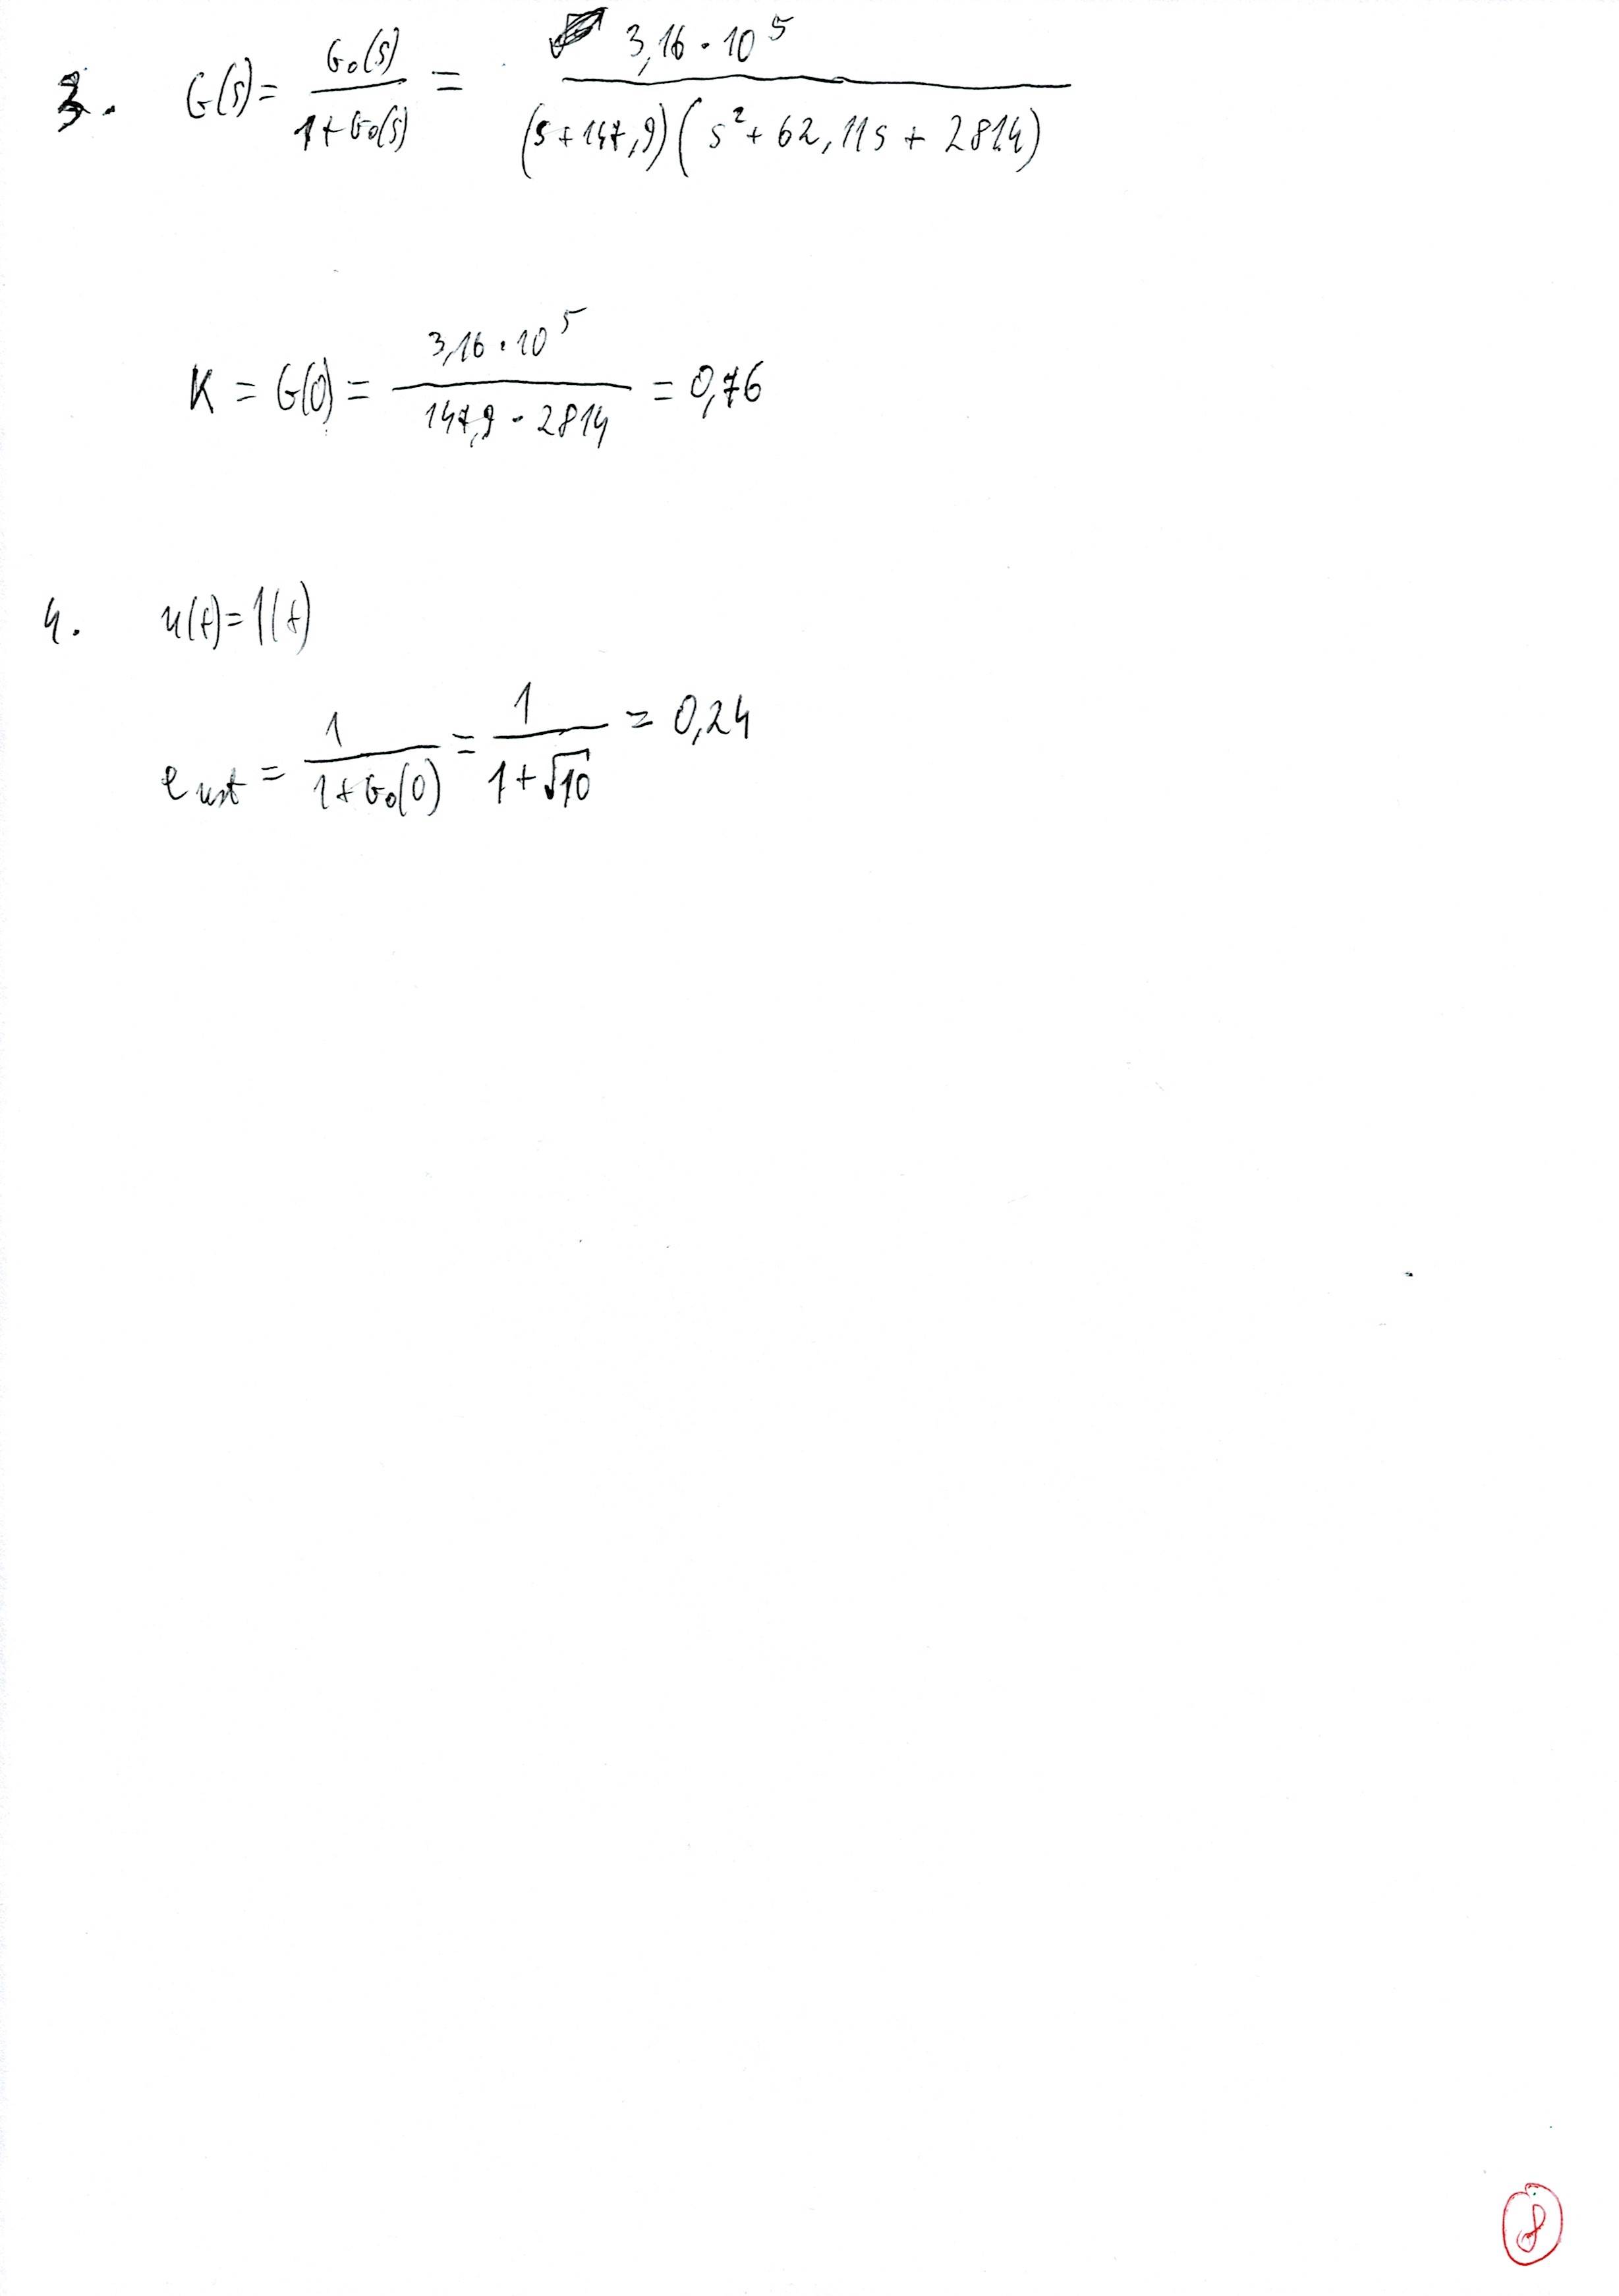 3. G(s) = G₀(s) / (1 + G₀(s)) = 3,16 · 10⁵ / ((s + 147,9)(s² + 62,11s + 2814))
K = G(0) = 3,16 · 10⁵ / (147,9 · 2814) = 0,76
4. u(t) = 1(t)
e ust = 1 / (1 + G₀(0)) = 1 / (1 + √10) = 0,24
8